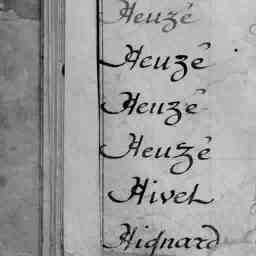 Heuzé
Heuzé
Heuzé
Heuzé
Hivet
Hignard